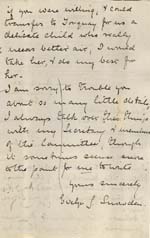 if you were willing, & could
transfer to Torquay for us a
delicate child who really
needs better air, I would
take her, & do my best for
her.
I am sorry to trouble you
about so many little details
I always talk over these things
with my Secretary & members
of the Committee, though
it sometimes seems more
to the point for me to write
Yours sincerely